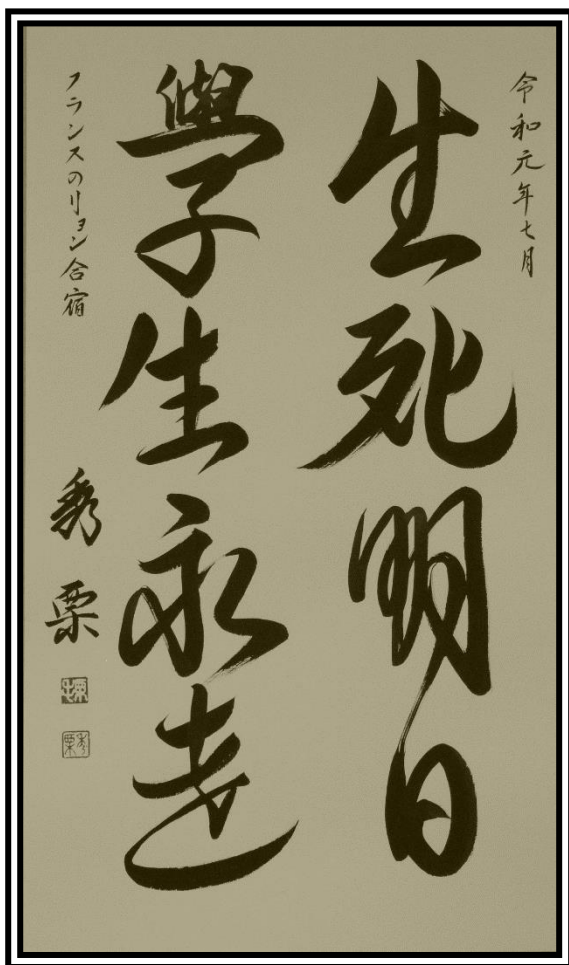 令和元年七月
生死明日
學生永遠
フランスのリヨン合宿
秀栗